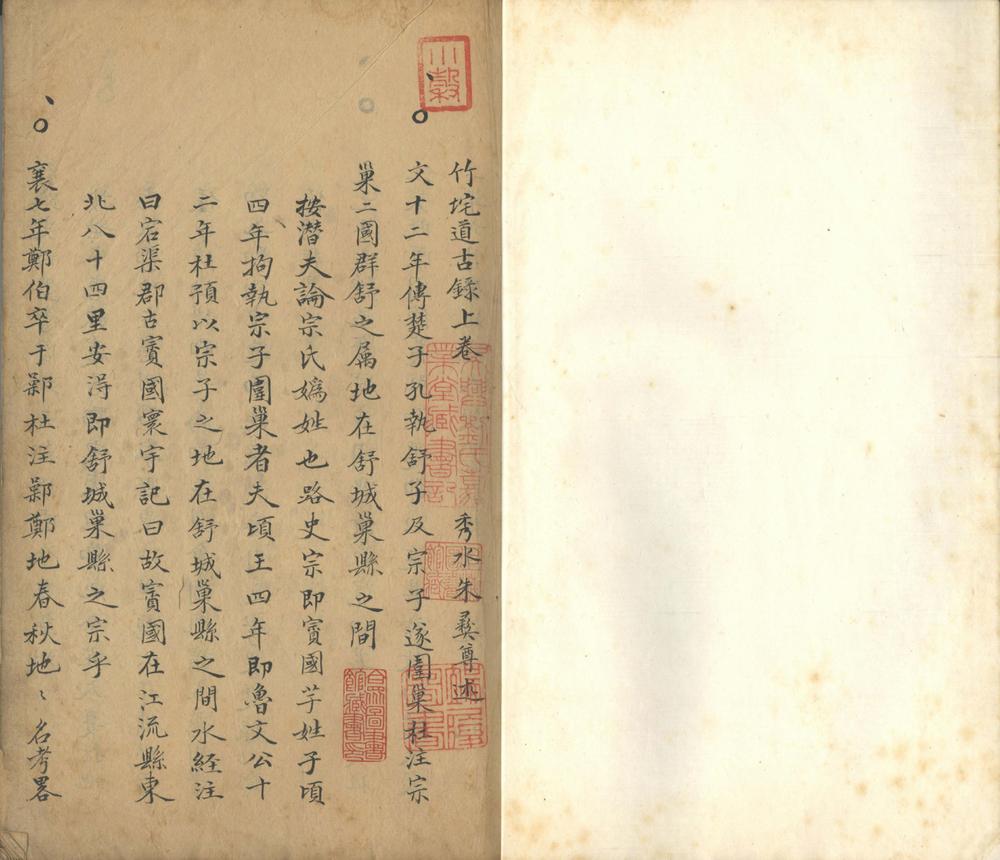 竹垞道古錄上卷 秀水朱彞尊述
文十二年傳楚子孔執舒子及宗子遂圍巢杜注宗
巢二國群舒之属地在舒城巢縣之間
按潛夫論宗氏嬀姓也路史宗即賓國芋姓子頃
四年拘執宗子圍巢者夫頃王四年即魯文公十
二年杜預以宗子之地在舒城巢縣之間水経注
曰宕渠郡古賨國寰宇記曰故賨國在江流縣東
北八十四里安得即舒城巢縣之宗乎
襄七年鄭伯卒于鄵杜注鄵鄭地春秋地〻名考畧
小穀